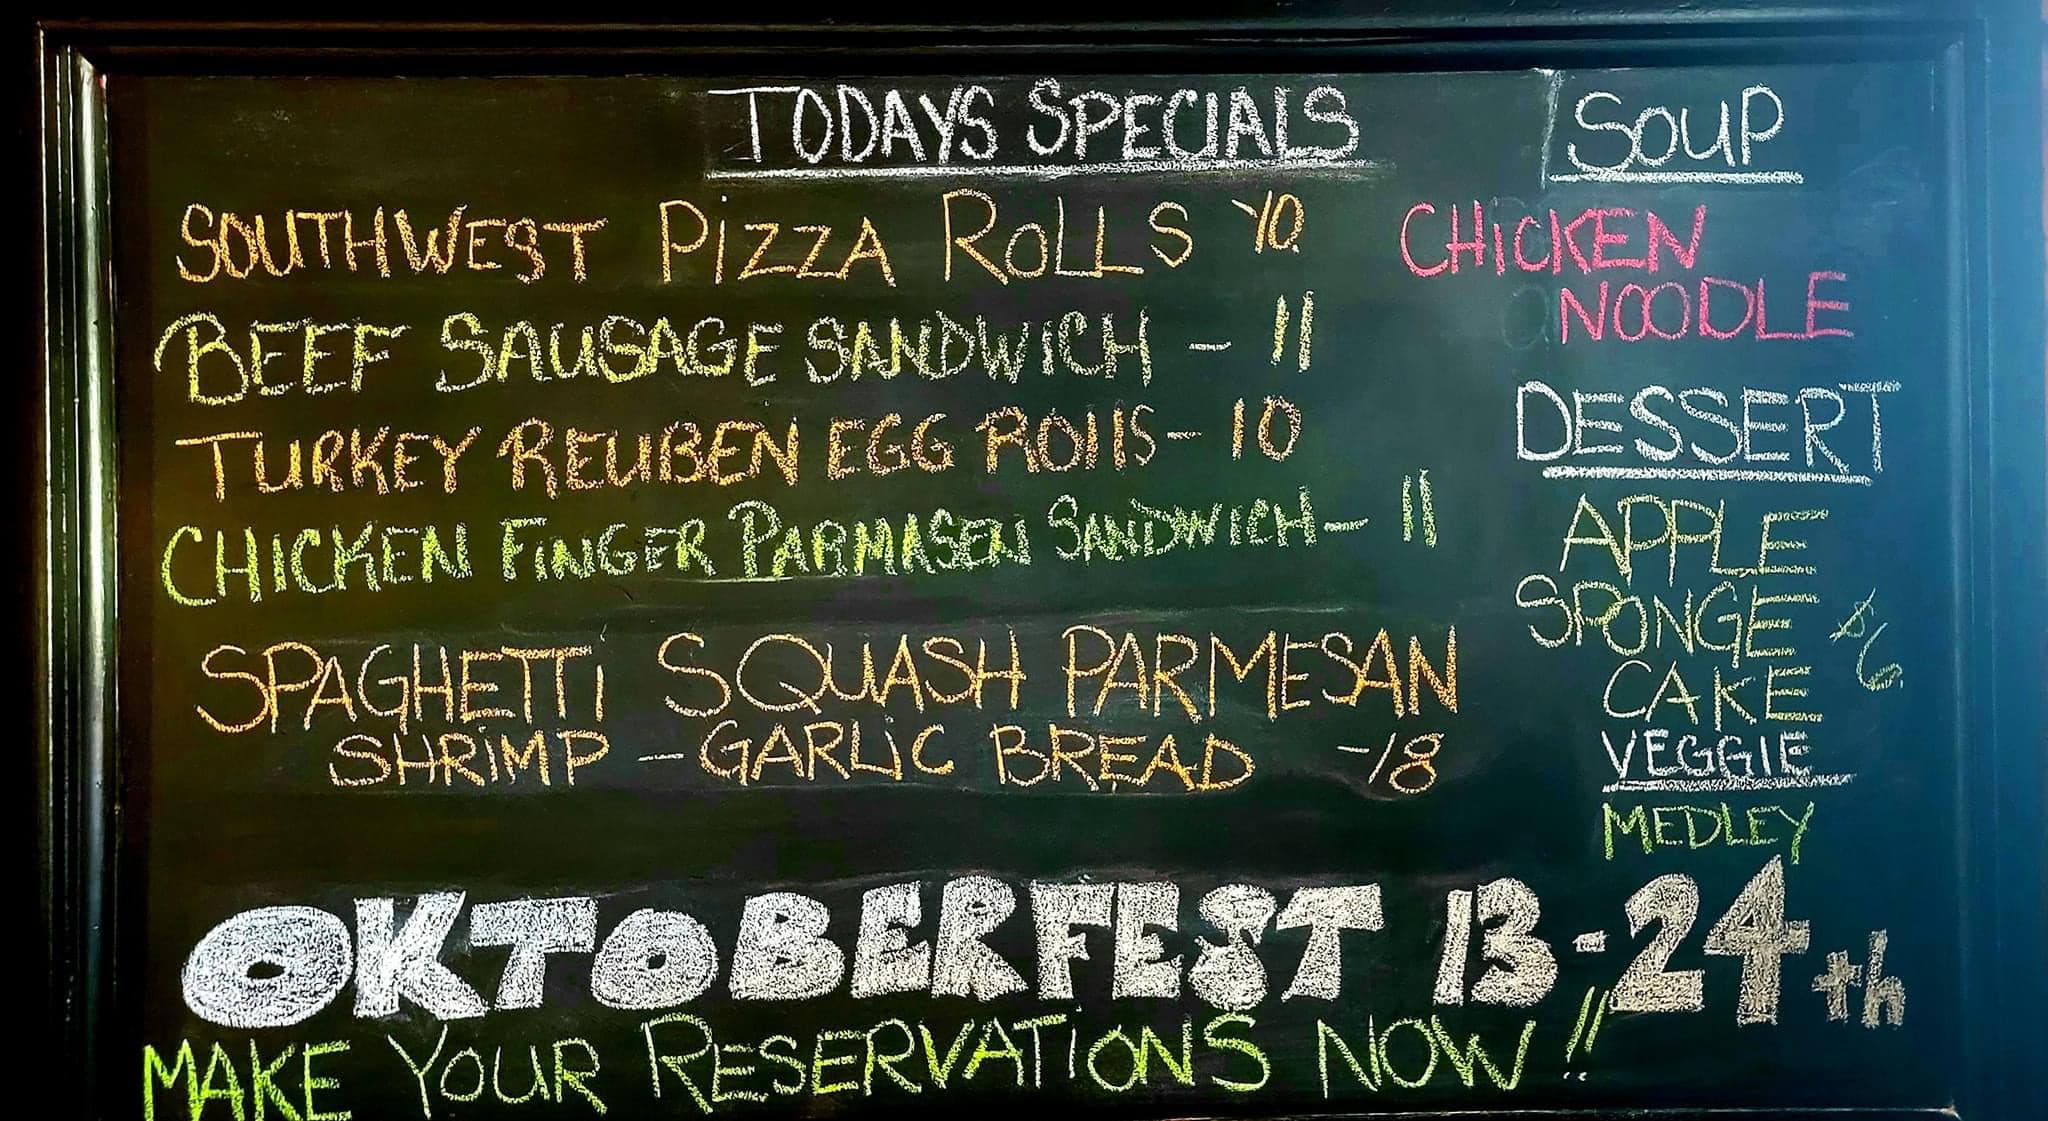 TODAYS SPECIALS
SOUTHWEST PIZZA ROLLS -10
BEEF SAUSAGE SANDWICH - 11
TURKEY REUBEN EGG ROllS - 10
CHICKEN FINGER PARMASEN SANDWICH - 11
SPAGHETTI SQUASH PARMESAN
SHRIMP - GARLIC BREAD -18
SOUP
CHICKEN
NOODLE
DESSERT
APPLE
SPONGE $6
CAKE
VEGGIE
MEDLEY
OKTOBERFEST 13-24th
MAKE YOUR RESERVATIONS NOW!!